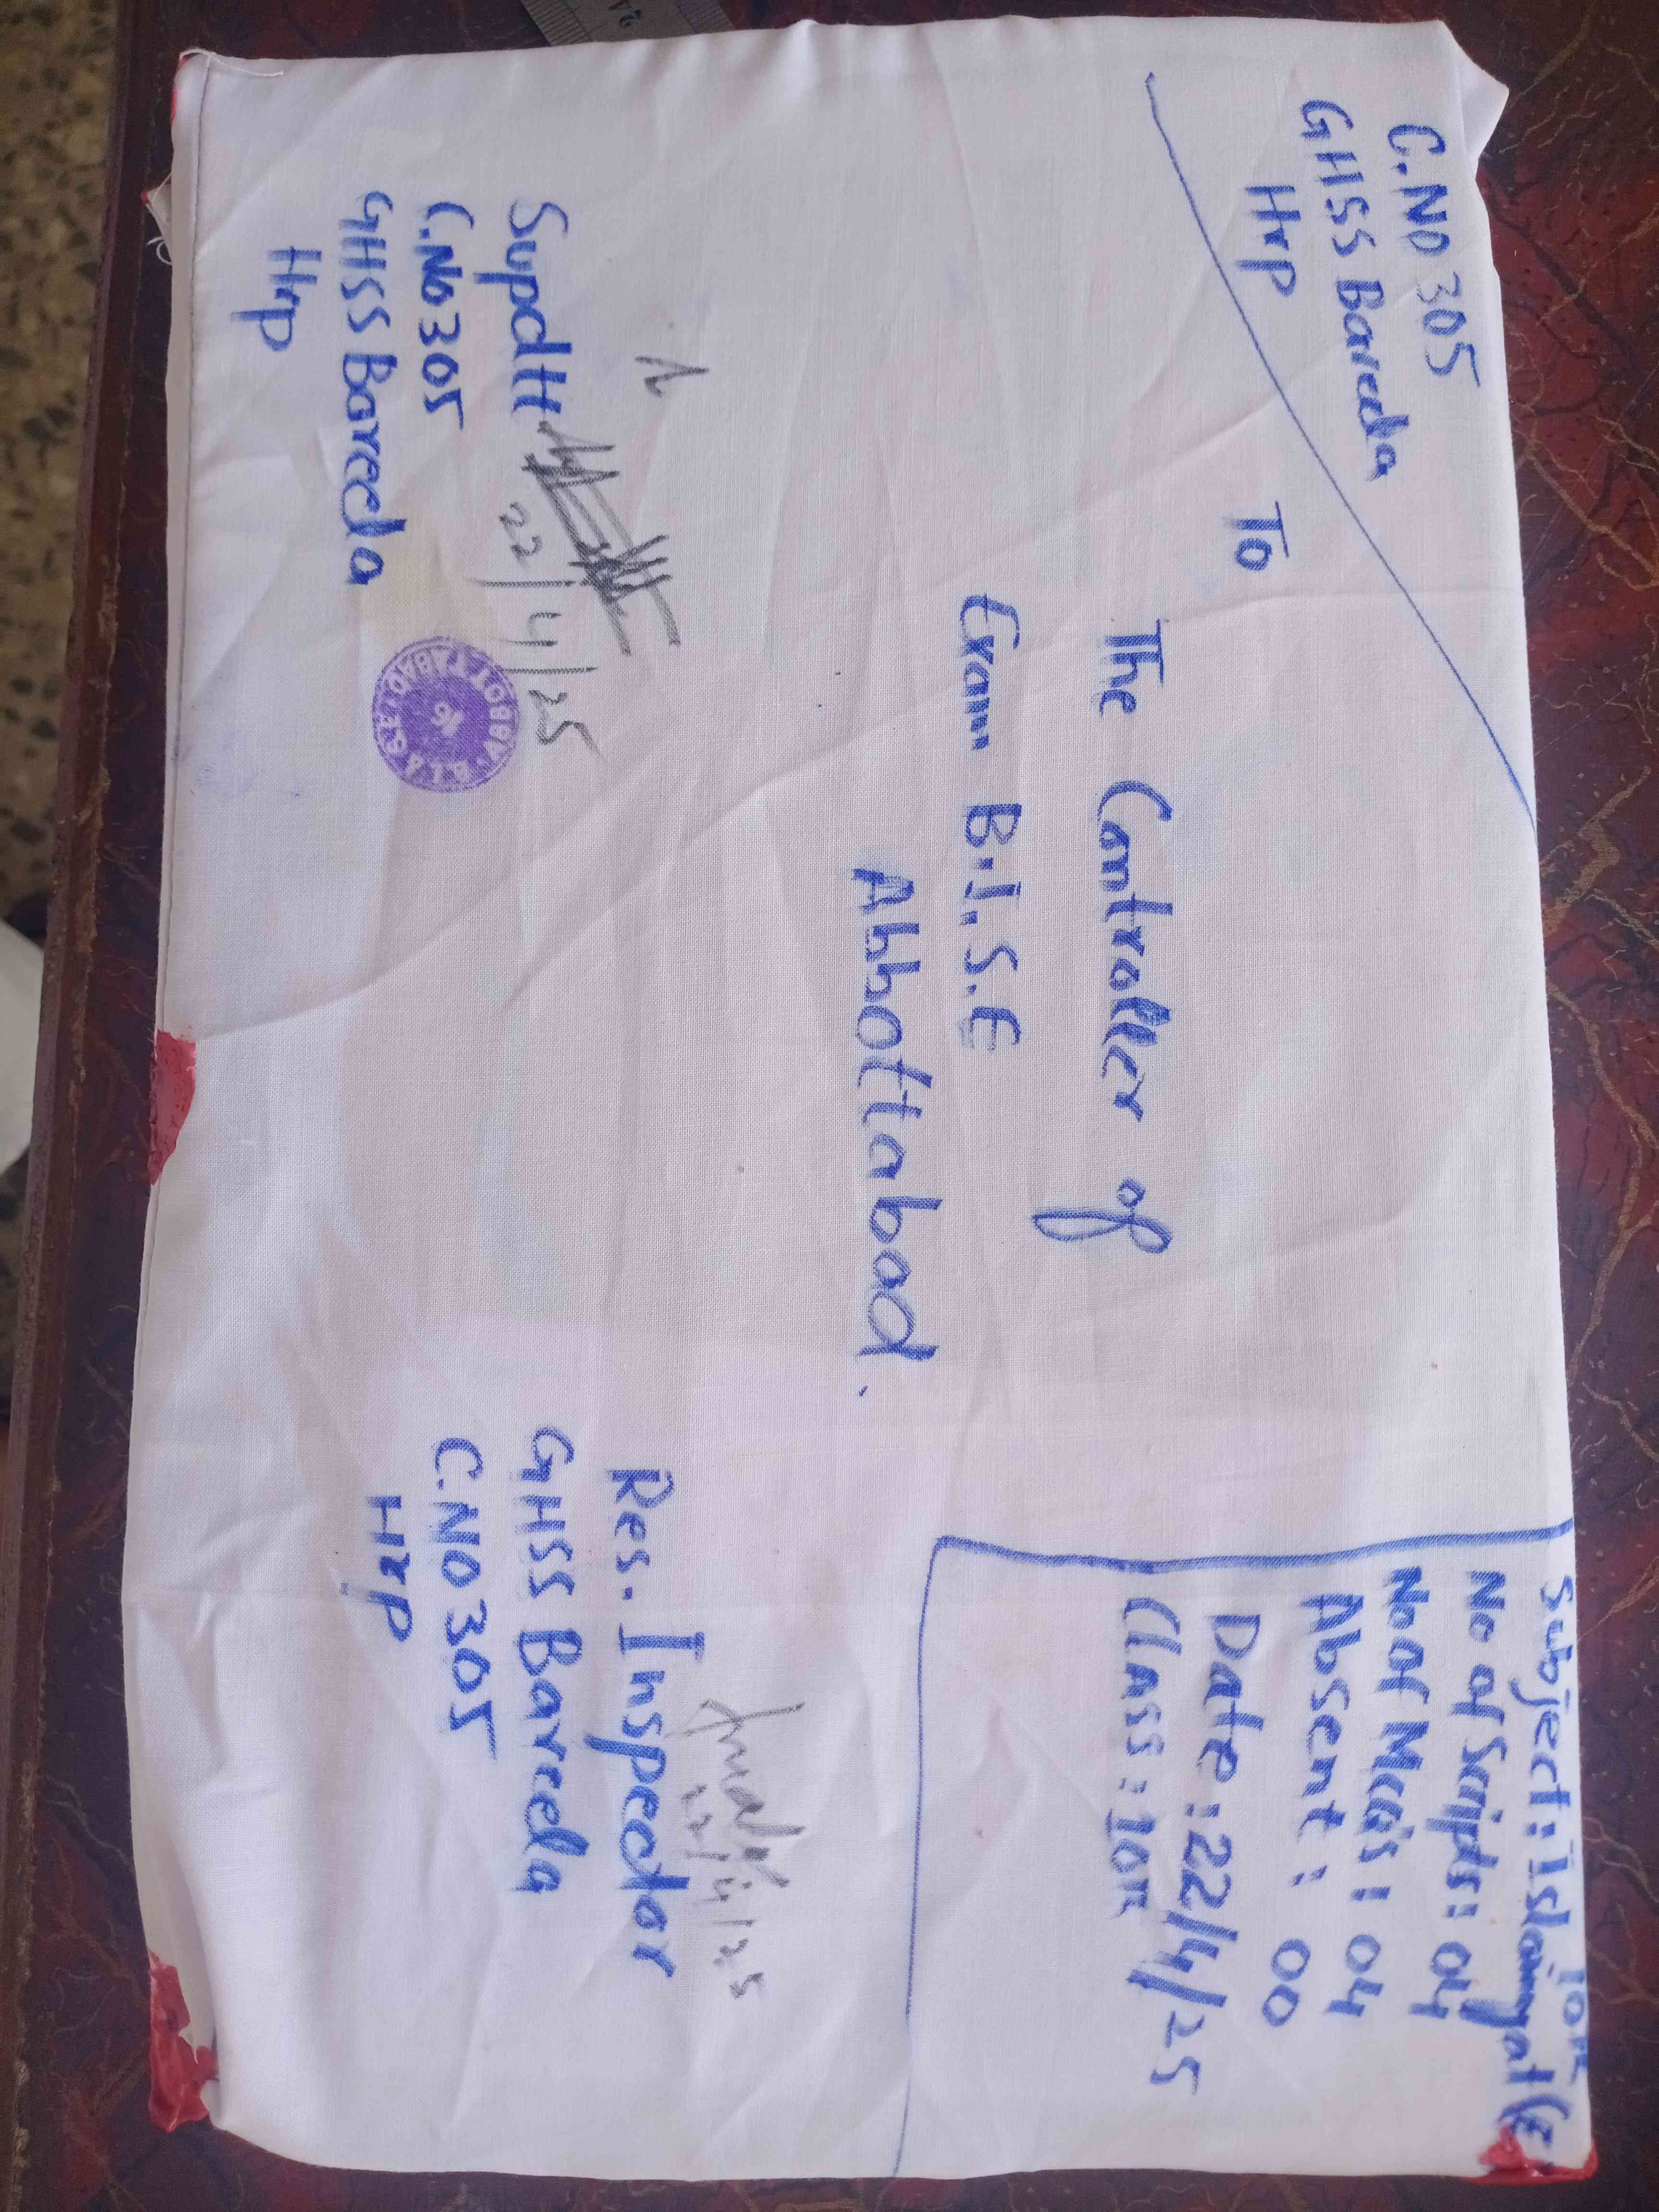 C.NO 305
GHSS Bareela
Hrp
To
The Controller of
Exam B.I.S.E
Abbottabad.
10TH
Subject: Islamyat (E
No of Scripts: 04
No of MCQs: 04
Absent: 00
Date: 22/4/25
Class: 10TH
Supdtt
22/4/25
C.No 305
GHSS Bareela
Hrp
B.I.S.E ABBOTTABAD
16
22/4/25
Res. Inspector
GHSS Bareela
C.NO 305
Hrp